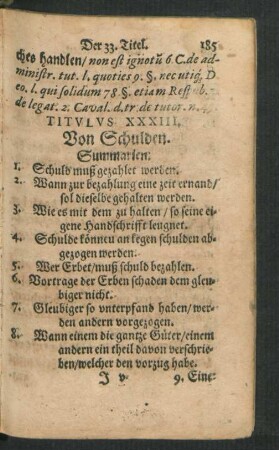 Der 33. Titel. 185
ches handlen / non est ignotũ 6. C. de ad-
ministr. tut. l. quoties 9. §. nec utiq; D
eo. l. qui solidum 78. §. etiam Rest ub. 2.
de legat. 2. Caval. d. tr. de tutor. n.
TITULUS XXXIII.
Von Schulden.
Summarien:
1. Schuld muß gezahlet werden.
2. Wann zur bezahlung eine zeit ernand /
sol dieselbe gehalten werden.
3. Wie es mit dem zu halten / so seine ei-
gene Handschrifft leugnet.
4. Schulde könneu an kegen schulden ab-
gezogen werden.
5. Wer Erbet / muß schuld bezahlen.
6. Vortrage der Erben schaden dem gleu-
biger nicht.
7. Gleubiger so unterpfand haben / wer-
den andern vorgezogen.
8. Wann einem die gantze Güter / einem
andern ein theil davon verschrie-
ben / welcher den vorzug habe.
J v 9. Eine